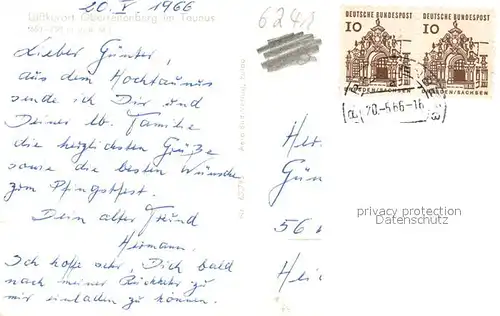 20. V. 1966
Luftkurort Oberreifenberg im Taunus
Lieber Günter,
aus dem Hochtaunus
sende ich Dir und
Deiner lb. Familie
die herzlichsten Grüße
sowie die besten Wünsche
zum Pfingstfest.
Dein alter Freund
Hermann.
Ich hoffe sehr, Dich bald
nach meiner Rückkehr zu
mir einladen zu können.
6241
10 DEUTSCHE BUNDESPOST
DRESDEN/SACHSEN
10 DEUTSCHE BUNDESPOST
DRESDEN/SACHSEN
20.-5.66-16
Her
Gün
56
Hei
privacy protection
Datenschutz